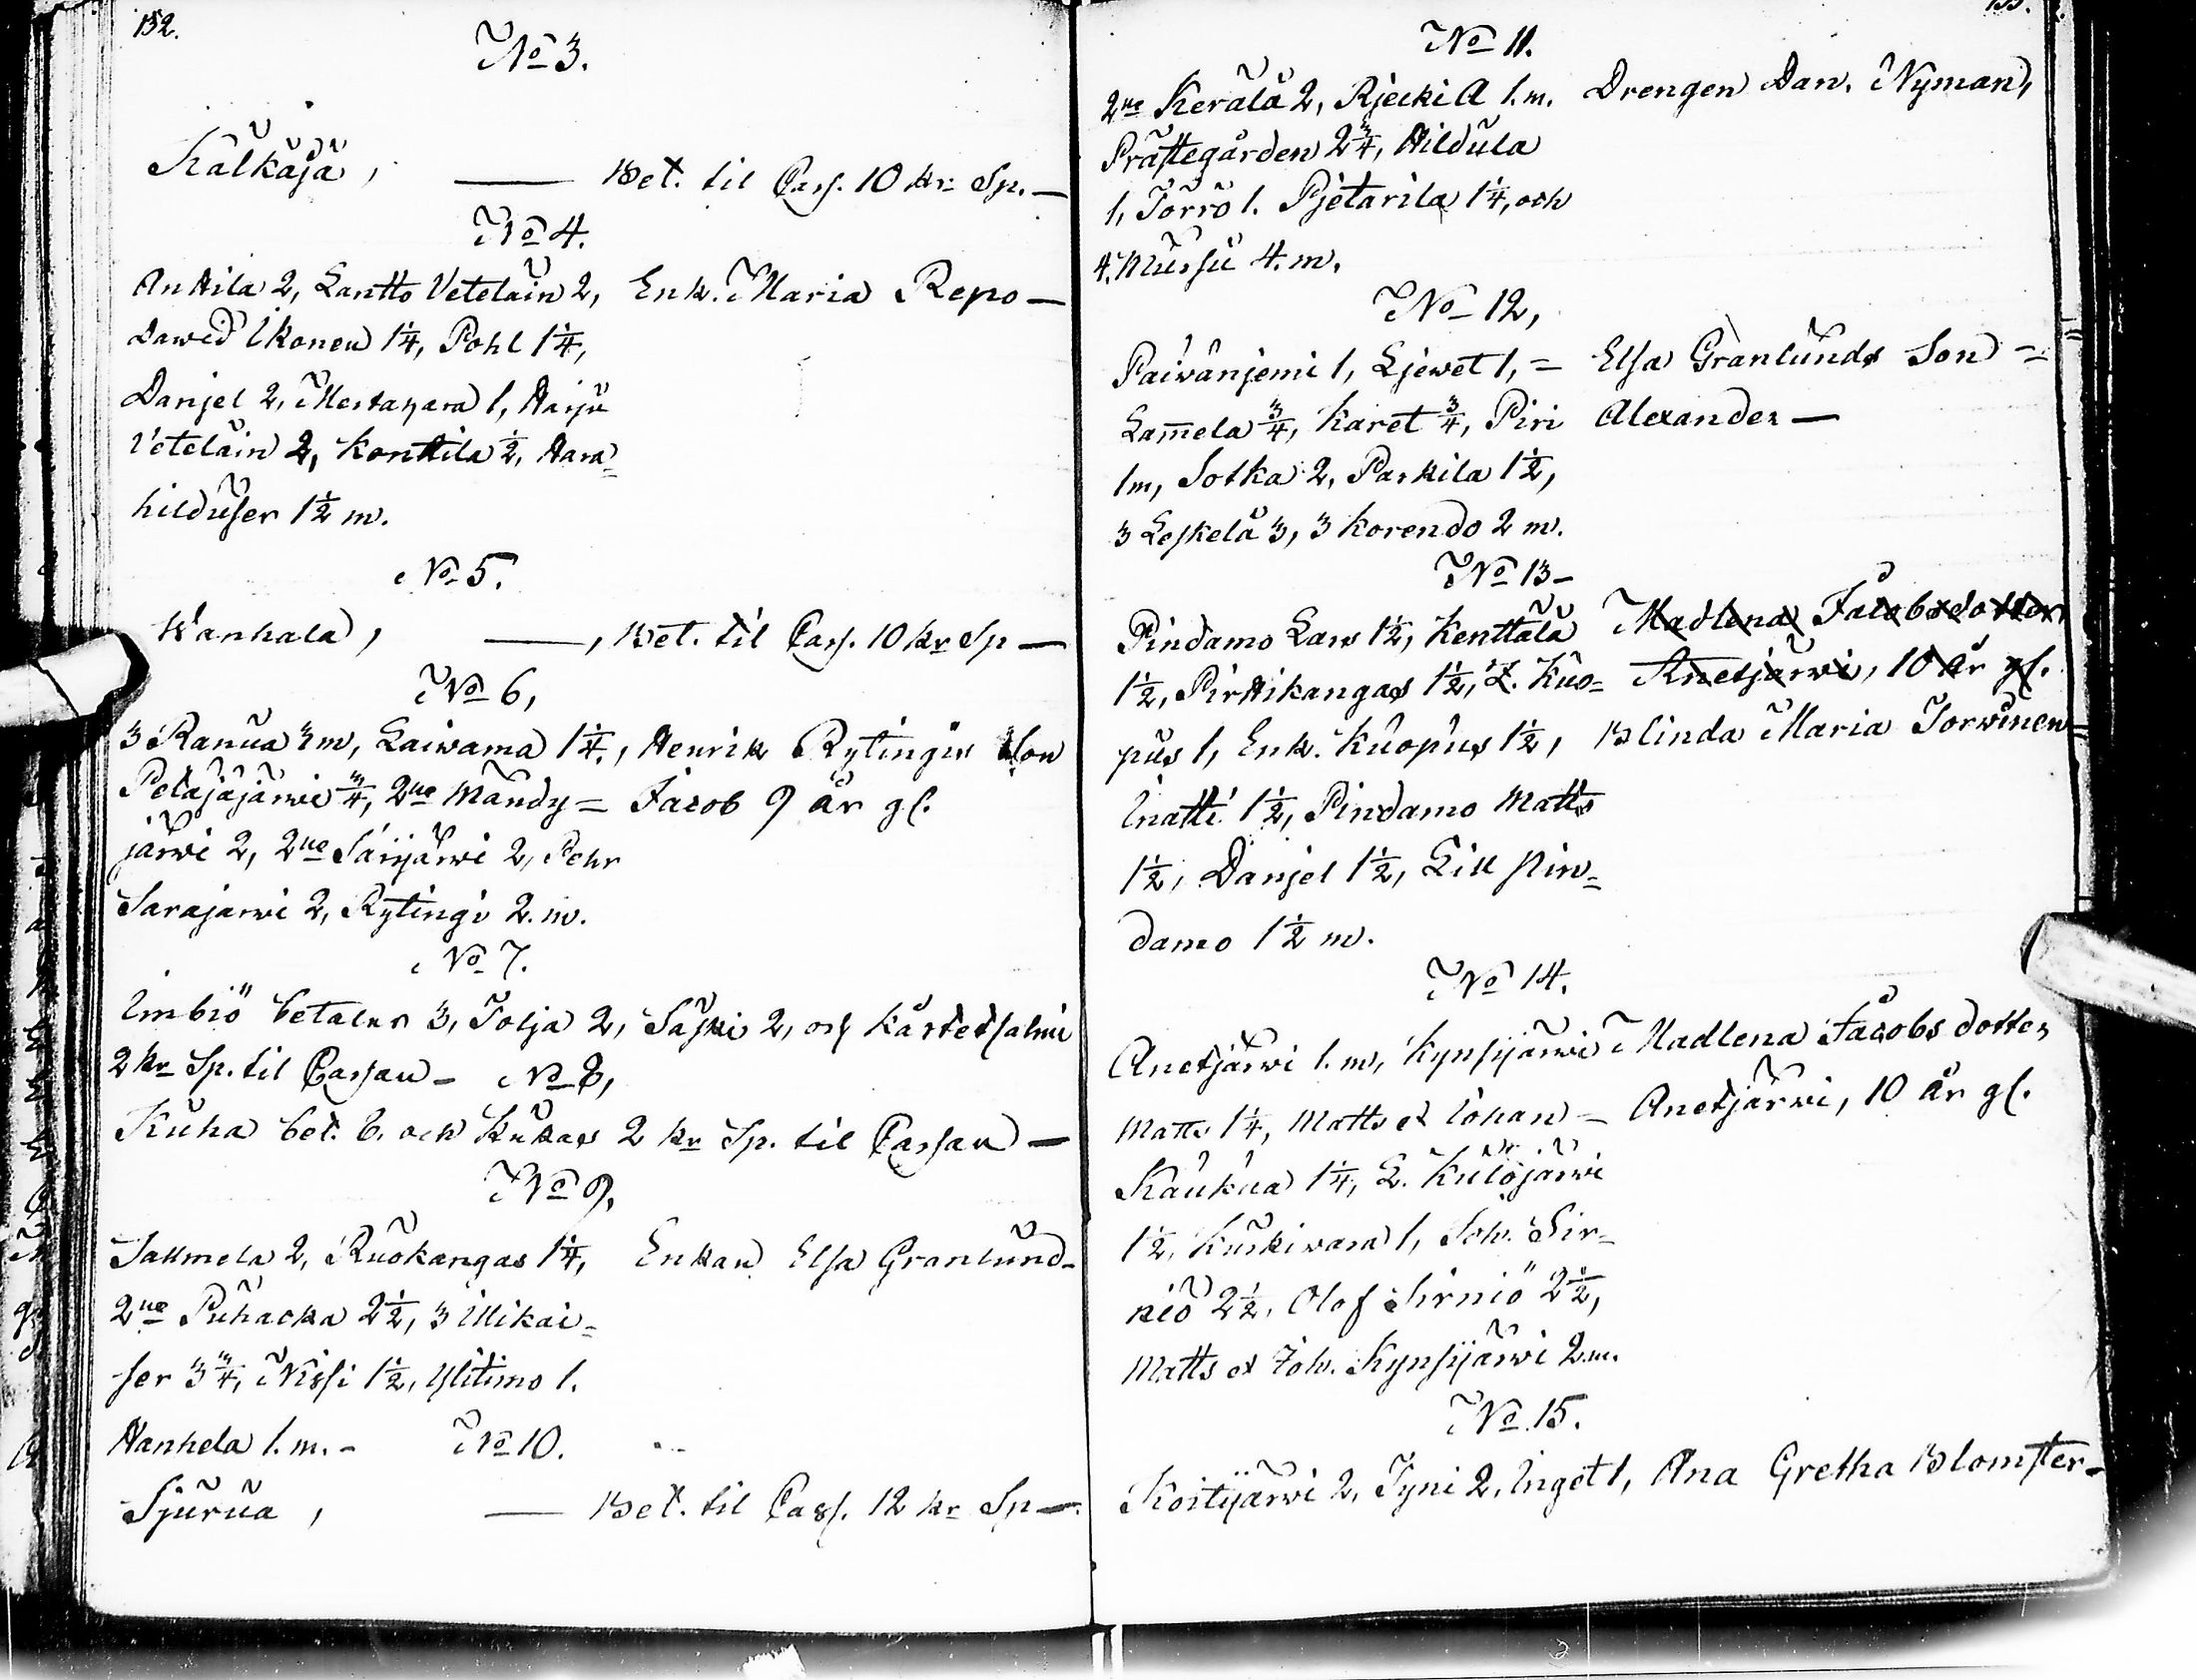 152.
No 3.
Kälkäjä, — Bet. til Cass. 10 kr Sp. —
No 4.
Anttila 2, Lantto Veteläin 2, Enk. Maria Repo —
Dawid Ikonen 1 1/4, Pohl 1 1/4,
Danjel 2, Mertavara 1, Harju
Veteläin 2, Konttila 1/2, Hara=
hilduser 1 1/2 m.
No 5.
Wanhala, —, Bet. til Cass. 10 kr Sp —
No 6,
3 Ranua 3 m, Laiwama 1 1/4, Henrik Rytingis Son
Petäjäjärwi 3/4, 2ne Mändy= Jacob 9 år gl.
järwi 2, 2ne Särijärwi 2, Pehr
Sarajärwi 2, Rytingi 2. m.
No 7.
Simbiö betalar 3, Tolja 2, Säski 2, och Kårtetsalmi
2 kr Sp. til Cassan — No 8,
Kuha bet. 6. och Kukas 2 kr Sp. til Cassan —
No 9.
Sallmela 2, Ruokangas 1 1/4, Enkan Elsa Granlund —
2ne Puhacka 2 1/2, 3 Illikai=
ser 3 3/4, Nissi 1 1/2, Ylitimo 1.
Hanhela 1. m. — No 10.
Sjurua, — Bet. til Cass. 12 kr Sp —
No 11.
2ne Kerälä 2, Rjecki A 1. m. Drengen Dan. Nyman,
Prästegården 2 3/4, Hildula
1, Törrö 1. Pjetarila 1 1/4, och
4. Mursu 4. m.
No 12,
Paiwänjemi 1, Ljewet 1, = Elsa Granlunds Son =
Lam̄ela 3/4, Karet 3/4, Piri Alexander —
1 m, Sotka 2, Parkila 1 1/2,
3 Leskelä 3, 3 Korendo 2 m.
No 13 —
Pindamo Lars 1 1/2, Kenttälä Madlena Jacobsdotter
1 1/2, Pirttikangas 1 1/2, L. Kuo= Anetjärwi, 10 år gl.
pus 1, Enk. Kuopus 1 1/2, Blinda Maria Torwinen =
Inatti 1 1/2, Pindamo Matts
1 1/2, Danjel 1 1/2, Lill Pin=
damo 1 1/2 m.
No 14.
Anetjärwi 1. m, Kynsijärwi Madlena Jacobs dotter
Matts 1 1/4, Matts et Johan — Anetjärwi, 10 år gl.
Kaukua 1 1/4, L. Kulojärwi
1 1/2, Kurkiwara 1, Joh. Sir=
niö 2 1/2, Olof Sirniö 2 1/2,
Matts et Joh. Kynsijärwi 2 m.
No 15.
Koitijärwi 2, Tyni 2, Inget 1, Ana Gretha Blomster —